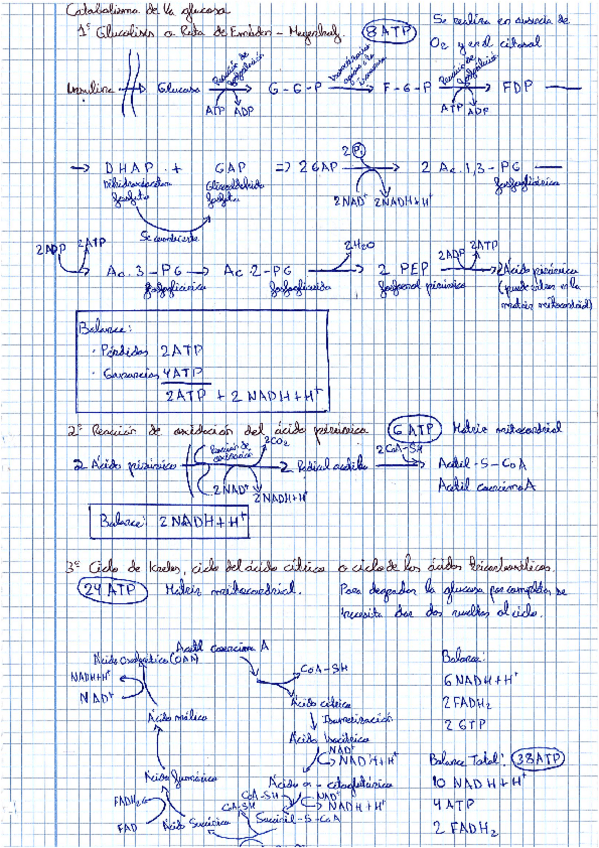 Catabolismo de la glucosa
1º Glucolisis o Ruta de Embden - Meyerhof. 8 ATP
Se realiza en ausencia de
O2 y en el citosol
Insulina → Glucosa → G-6-P → F-6-P → FDP
Reacción de fosforilación
Reacción de fosforilación
ATP ADP
ATP ADP
→ DHAP + GAP => 2 GAP → 2 Ac. 1,3-PG
Dihidroxiacetona fosfato
Gliceraldehido fosfato
fosfoglicérico
2 Pi
2 NAD+ 2 NADH+H+
Se convierte
2 ADP 2 ATP
→ Ac. 3-PG → Ac. 2-PG → 2 PEP → 2 Ácido pirúvico
fosfoglicérico
fosfoglicérico
fosfoenol pirúvico
2 H2O
2 ADP 2 ATP
(puede entrar en la
matriz mitocondrial)
Balance:
· Pérdidas 2 ATP
· Ganancias 4 ATP
2 ATP + 2 NADH+H+
2º Reacción de oxidación del ácido pirúvico 6 ATP Matriz mitocondrial
2 Ácido pirúvico → 2 Radical acetilo → Acetil-S-CoA
Reacción de
2 CO2
2 CoA-SH
Acetil coenzima A
2 NAD+ 2 NADH+H+
Balance: 2 NADH+H+
3º Ciclo de Krebs, ciclo del ácido cítrico o ciclo de los ácidos tricarboxílicos.
24 ATP Matriz mitocondrial. Para degradar la glucosa por completo se
necesita dar dos vueltas al ciclo.
Acetil coenzima A
Ácido oxalacético (OAA)
CoA-SH
NADH+H+
NAD+
Ácido cítrico
Isomerización
Ácido málico
Ácido isocítrico
NAD+
NADH+H+
Ácido fumárico
Ácido α-cetoglutárico
CoA-SH NAD+
CoA-SH NADH+H+
FADH2
FAD
Ácido Succínico
Succinil-S-CoA
Balance:
6 NADH+H+
2 FADH2
2 GTP
Balance Total: 38 ATP
10 NADH+H+
4 ATP
2 FADH2